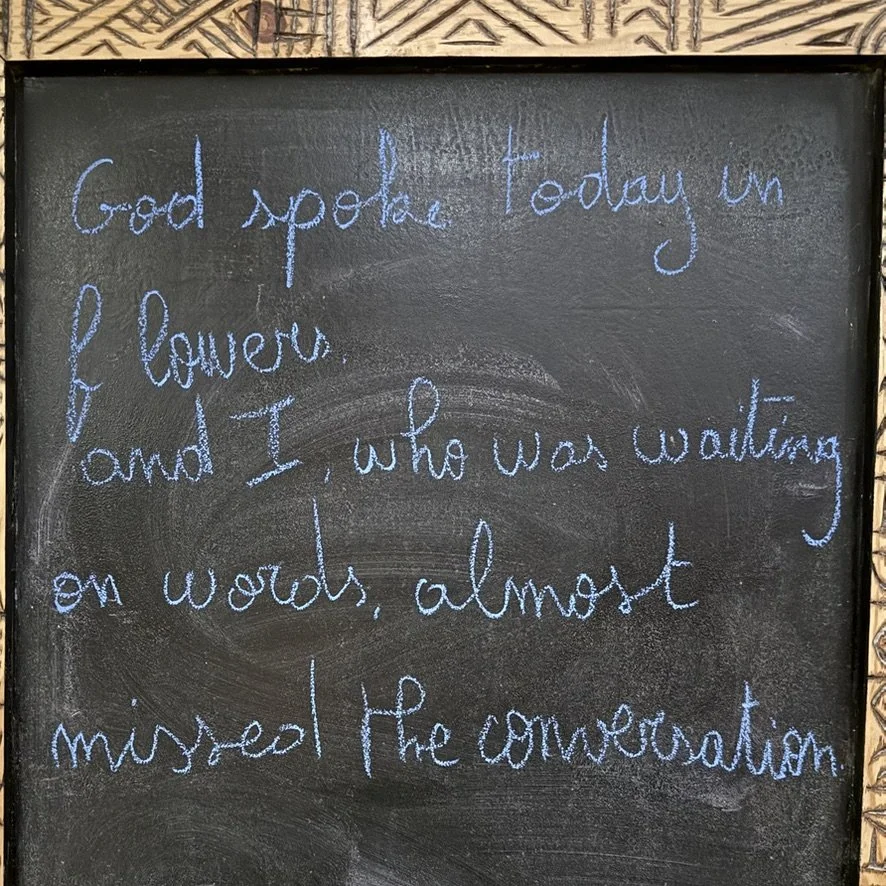 God spoke today in
flowers.
and I, who was waiting
on words, almost
missed the conversation.